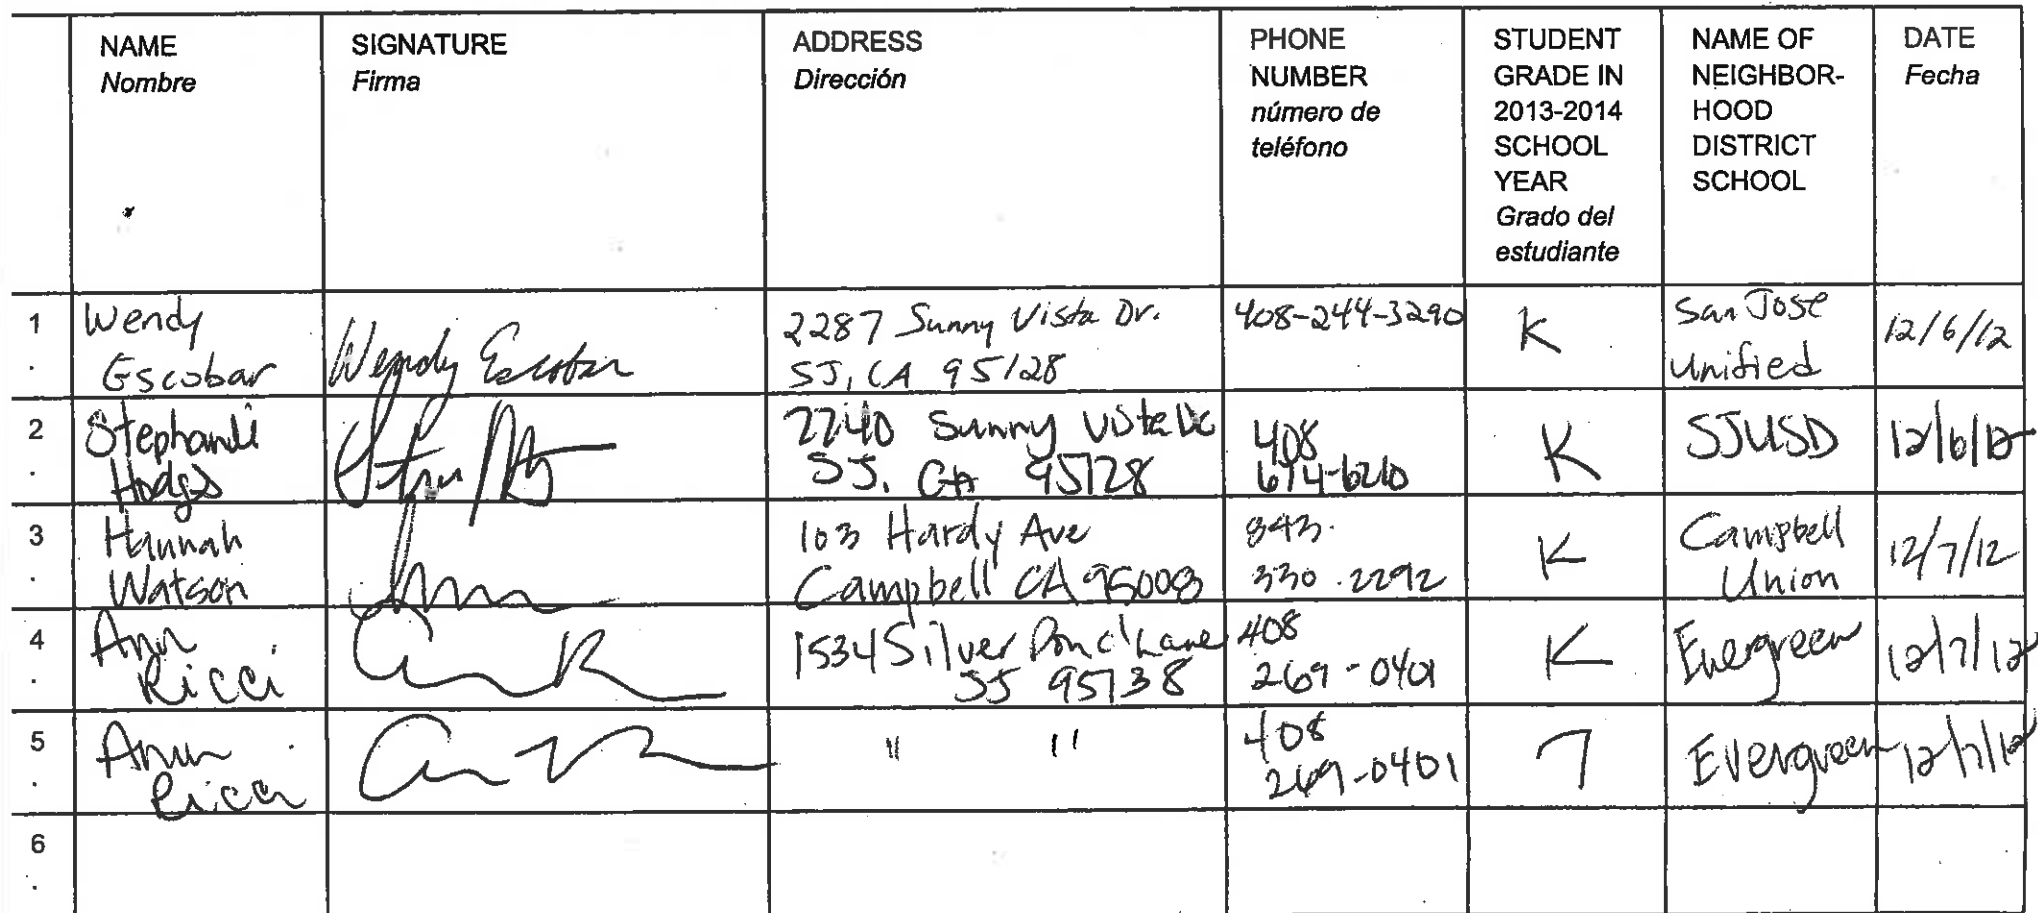 NAME
Nombre
SIGNATURE
Firma
ADDRESS
Dirección
PHONE
NUMBER
número de
teléfono
STUDENT
GRADE IN
2013-2014
SCHOOL
YEAR
Grado del
estudiante
NAME OF
NEIGHBOR-
HOOD
DISTRICT
SCHOOL
DATE
Fecha
1.
Wendy
Escobar
Wendy Escobar
2287 Sunny Vista Dr.
SJ, CA 95128
408-244-3290
K
San Jose
Unified
12/6/12
2.
Hodgs
2240 Sunny Vista Dr
SJ. CA 95128
408
674-6210
K
SJUSD
12/6/12
3.
Hannah
Watson
103 Hardy Ave
Campbell CA 95008
843.
330.2292
K
Campbell
Union
12/7/12
4.
Ann
Ricci
1534 Silver Pond Lane
SJ 95138
408
269-0401
K
Evergreen
12/7/12
5.
Ann
Ricci
" "
408
269-0401
7
Evergreen
12/7/12
6.